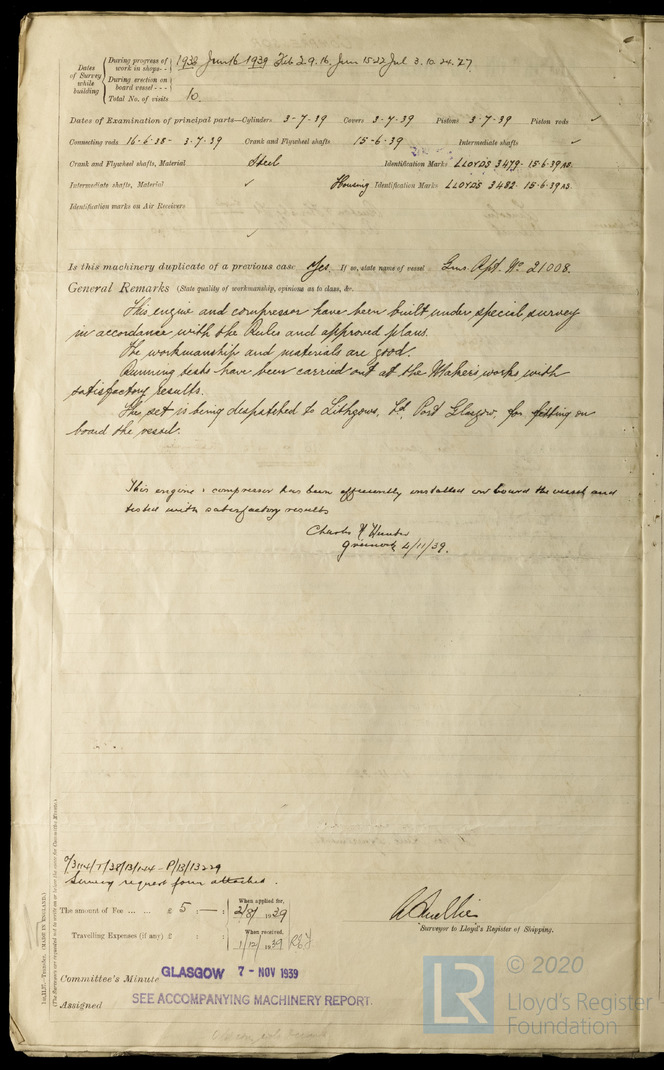 Dates of Survey while building
During progress of work in shops - - 1938 Jun 16 1939 Feb 2.9.16. Jun 15.22 Jul 3.10.24.27.
During erection on board vessel - - -
Total No. of visits 10.
Dates of Examination of principal parts—Cylinders 3-7-39 Covers 3-7-39 Pistons 3-7-39 Piston rods ✓
Connecting rods 16-6-38 - 3-7-39 Crank and Flywheel shafts 15-6-39 Intermediate shafts ✓
Crank and Flywheel shafts, Material Steel Identification Marks LLOYD'S 3479. 15.6.39 AS.
Intermediate shafts, Material ✓ Housing Identification Marks LLOYDS 3482. 15.6.39 AS.
Identification marks on Air Receivers
✓
Is this machinery duplicate of a previous case Yes. If so, state name of vessel Gms. Rpt. No. 21008.
General Remarks (State quality of workmanship, opinions as to class, &c.
This engine and compressor have been built under special survey
in accordance with the Rules and approved plans.
The workmanship and materials are good.
Running tests have been carried out at the Makers works with
satisfactory results.
The set is being despatched to Lithgows, Ld, Port Glasgow, for fitting on
board the vessel.
This engine & compressor has been efficiently installed on board the vessel and
tested with satisfactory results
Charles H. Hunter
Greenock 4/11/39.
Survey request form attached.
The amount of Fee ... ... £ 5 : — :
When applied for, 2/8/1939
Travelling Expenses (if any) £ : :
When received, 1/12/1939
Surveyor to Lloyd's Register of Shipping.
Committee's Minute GLASGOW 7 - NOV 1939
Assigned SEE ACCOMPANYING MACHINERY REPORT.
(MADE IN ENGLAND.)
(The Surveyors are requested not to write on or below the space for Committee's Minute.)
LR
© 2020
Lloyd's Register
Foundation